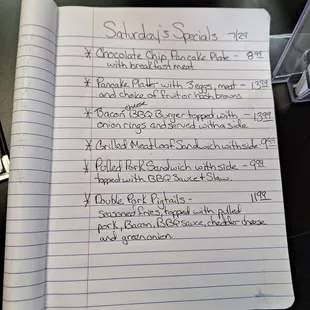 Saturday's Specials 7/29
* Chocolate Chip Pancake Plate - 8.99
with breakfast meat
* Pancake Platter with 3 eggs, meat - 13.99
and choice of fruit or hash browns
cheese
* Bacon BBQ Burger topped with - 13.99
onion rings and served with a side
* Grilled Meatloaf Sandwich with side 9.99
* Pulled Pork Sandwich with side - 9.99
topped with BBQ Sauce + Slaw.
* Double Pork Pigtails - 11.99
seasoned fries, topped with pulled
pork, Bacon, BBQ sauce, cheddar cheese
and green onion.